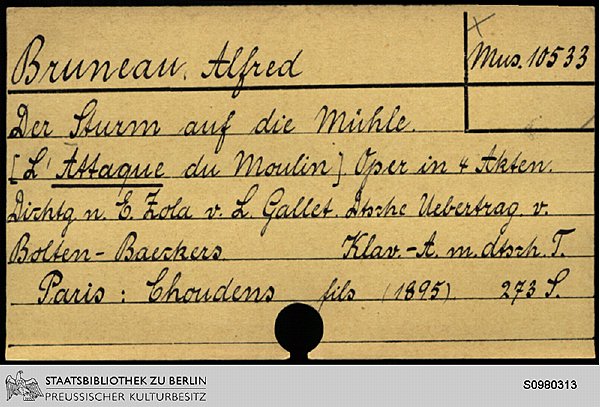 Bruneau, Alfred
Mus. 10533
Der Sturm auf die Mühle.
[L'Attaque du Moulin] Oper in 4 Akten.
Dichtg n. E. Zola v. L. Gallet. Dtsche Uebertrag. v.
Bolten-Baeckers. Klav.-A. m. dtsch. T.
Paris: Choudens fils (1895). 273 S.
STAATSBIBLIOTHEK ZU BERLIN
PREUSSISCHER KULTURBESITZ
S0980313